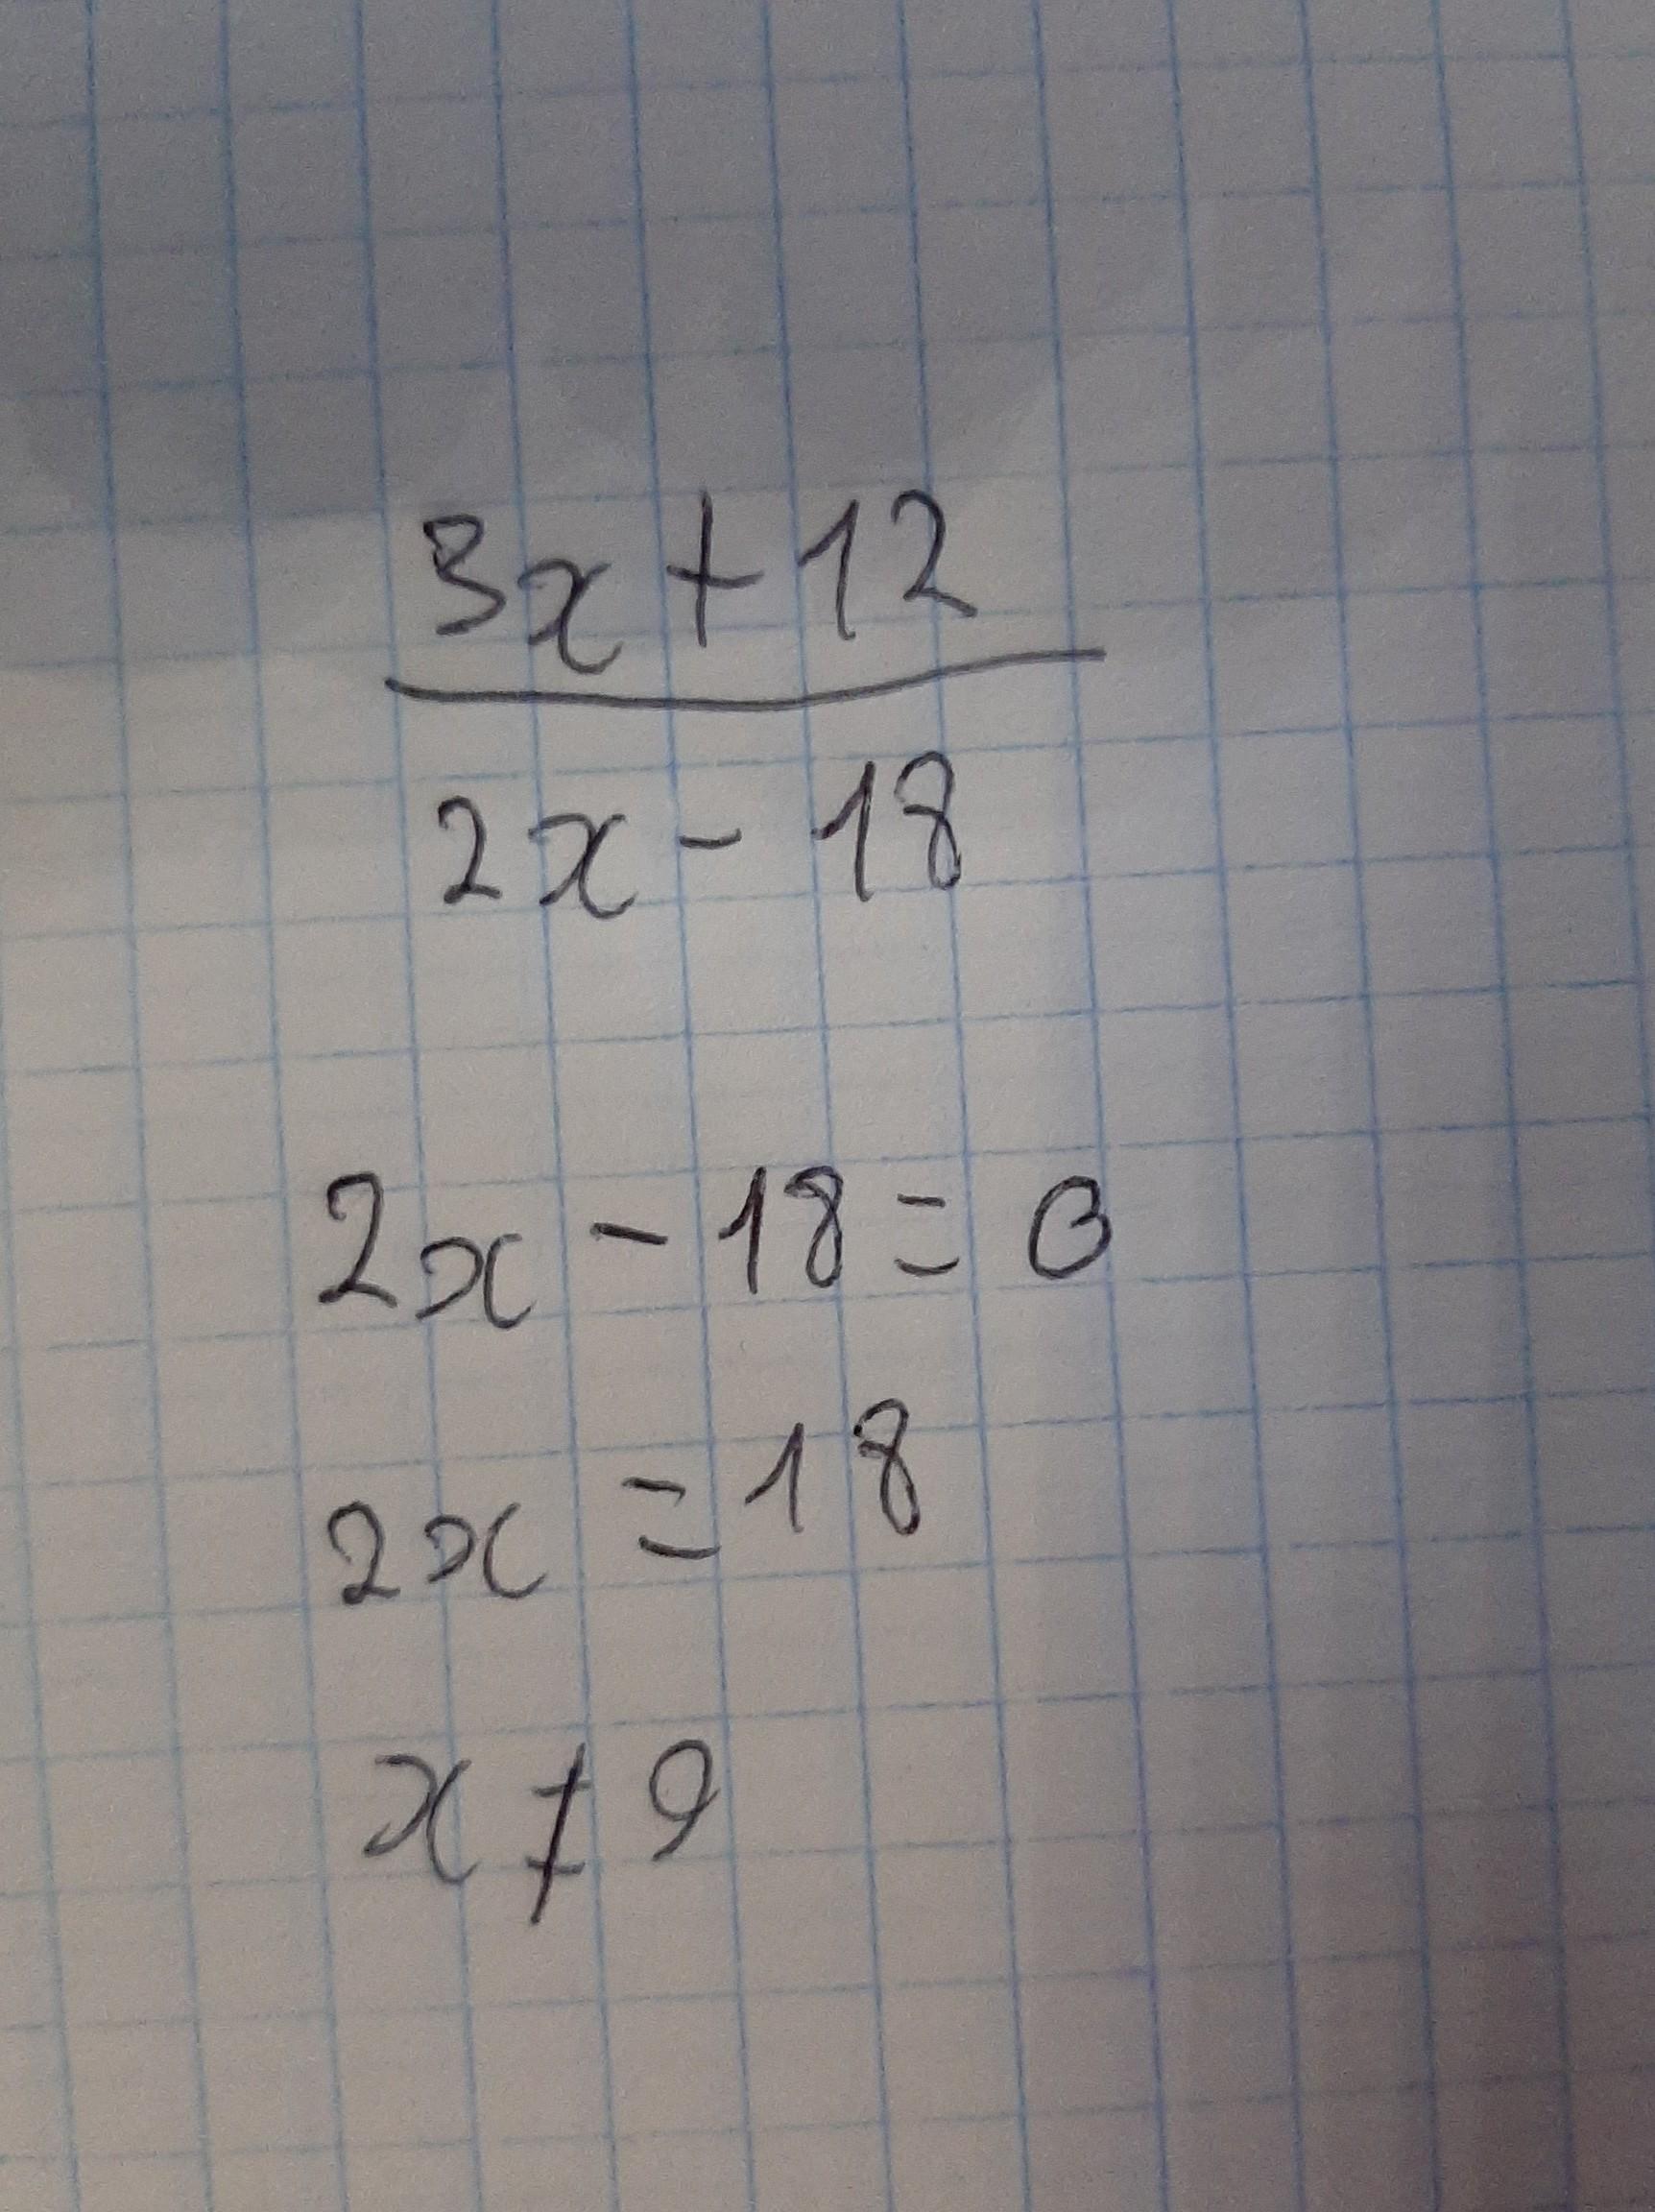 3x + 12
2x - 18
2x - 18 = 0
2x = 18
x ≠ 9